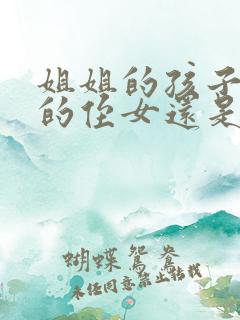 姐姐的孩子
的侄女還是
蝴蝶鴛鴦
未经同意禁止转载